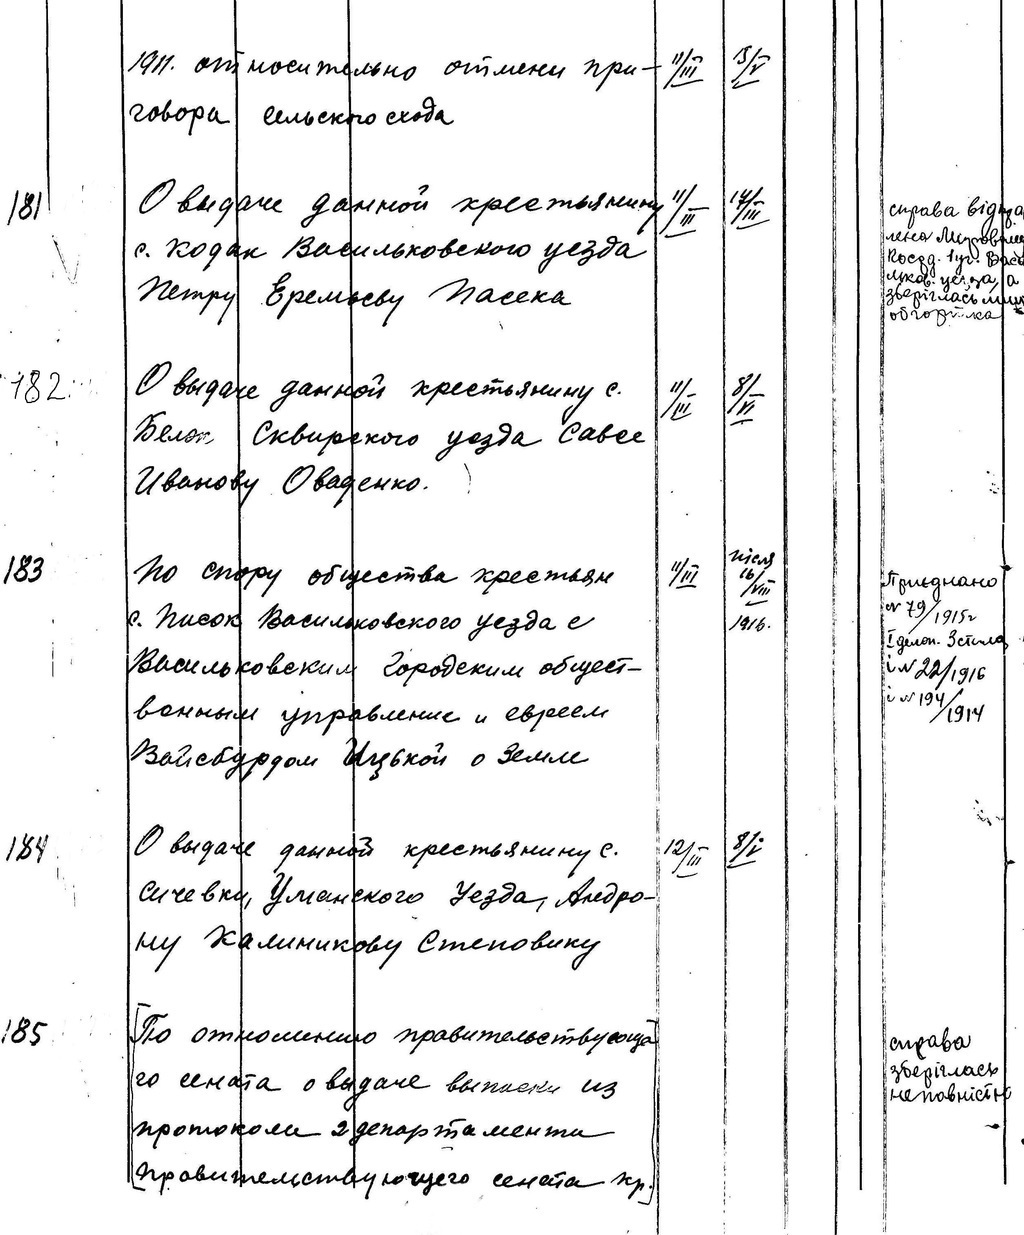 1911. относительно отмени при-
говора сельского схода
11/III
13/V
181
О выдаче данной крестьянину
с. Кодак Васильковского уезда
Петру Еремьеву Пасека
11/III
17/III
справа відправ
лена Мировому
Посред. 1 уч. Васи
льков. уезда, а
зберіглась лише
обгортка
182.
О выдаче данной крестьянину с.
Белок Сквирского уезда Савве
Иванову Оваденко.
11/III
8/VI
183
По спору общества крестьян
с. Писок Васильковского уезда с
Васильковским Городским общест-
венным управление и евреем
Вайсбурдом Ицькой о Земле
11/III
після
16/VIII
1916.
Приєднано
№ 79/1915г
I делоп. 3 стола
і № 22/1916
і № 194/1914
184
О выдаче данной крестьянину с.
Сичевки, Уманского Уезда, Андро-
ну Калиникову Степовику
12/III
8/V
185
[По отношению правительствующа
го сената о выдаче выписки из
протокола 2 департамента
правительствующего сената кр.]
справа
зберіглась
неповністю